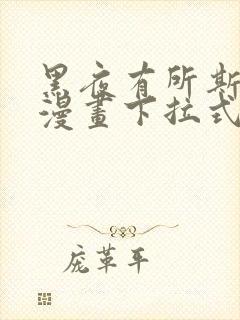 黑夜有所斯
漫畫下拉式
庞革平